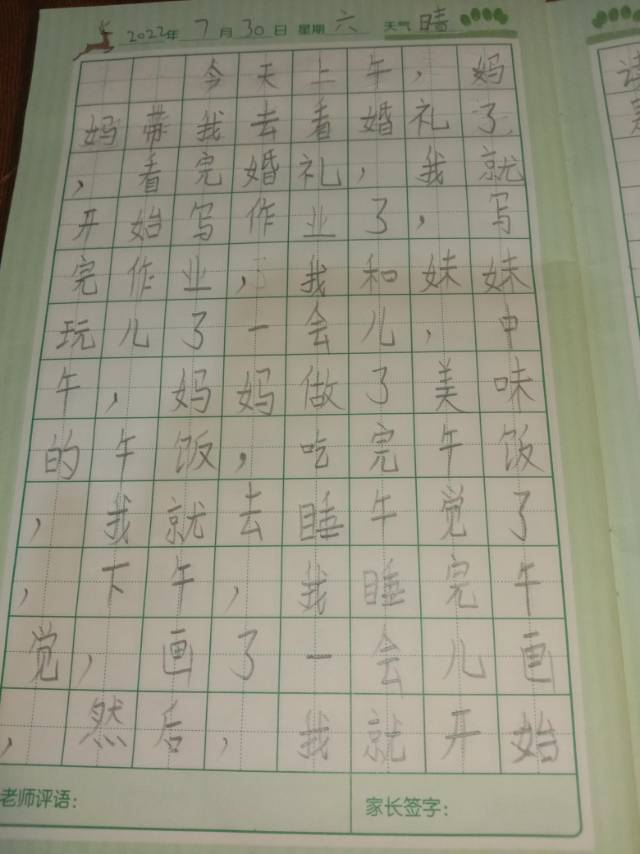 2022年7月30日 星期六 天气晴
今天上午，妈
妈带我去看婚礼了
，看完婚礼，我就
开始写作业了，写
完作业，我和妹妹
玩儿了一会儿，中
午，妈妈做了美味
的午饭，吃完午饭
，我就去睡午觉了
，下午，我睡完午
觉，画了一会儿画
，然后，我就开始
老师评语： 家长签字：